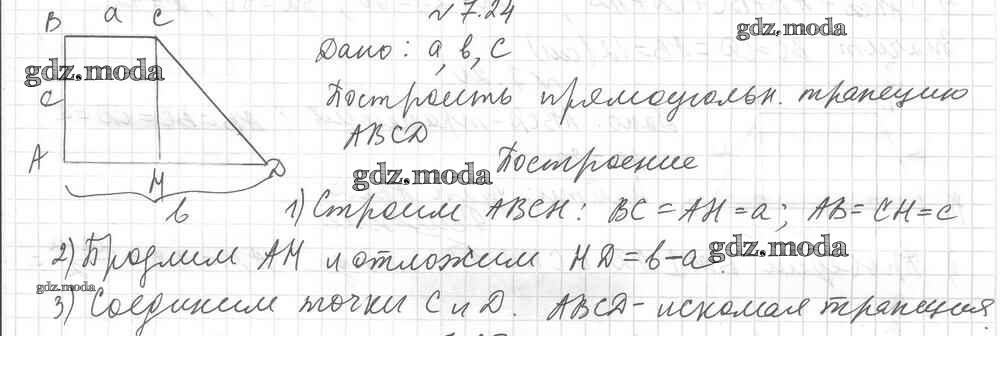 № 7.24
B a C
Дано: a, b, c
gdz.moda
gdz.moda
c
Построить прямоугольн. трапецию
ABCD
A H D
b
Построение
gdz.moda
1) Строим ABCH: BC = AH = a; AB = CH = c
2) Продлим AH и отложим HD = b - a.
gdz.moda
gdz.moda
3) Соединим точки C и D. ABCD - искомая трапеция